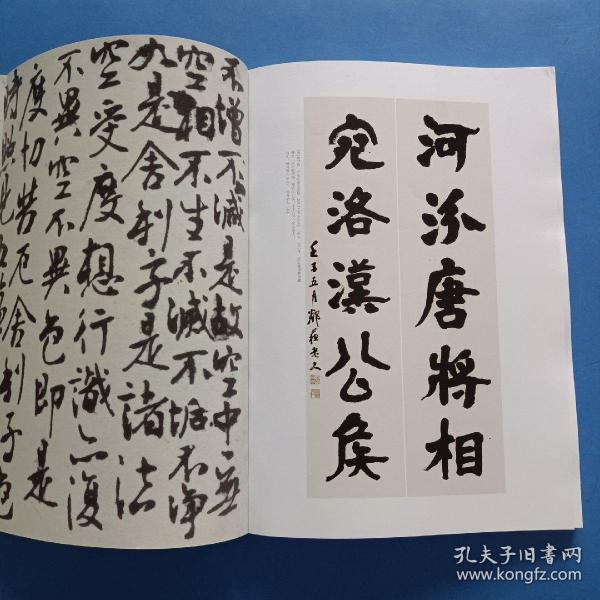 河汾唐將相
宛洛漢公矦
壬子五月
老人
不增不減是故空中無
空相不生不滅不垢不净
如是舍利子是諸法
空受度想行識亦復
不異空不異色即是
度切苦厄舍利子色
時照見五蘊
孔夫子旧书网
www.kongfz.com